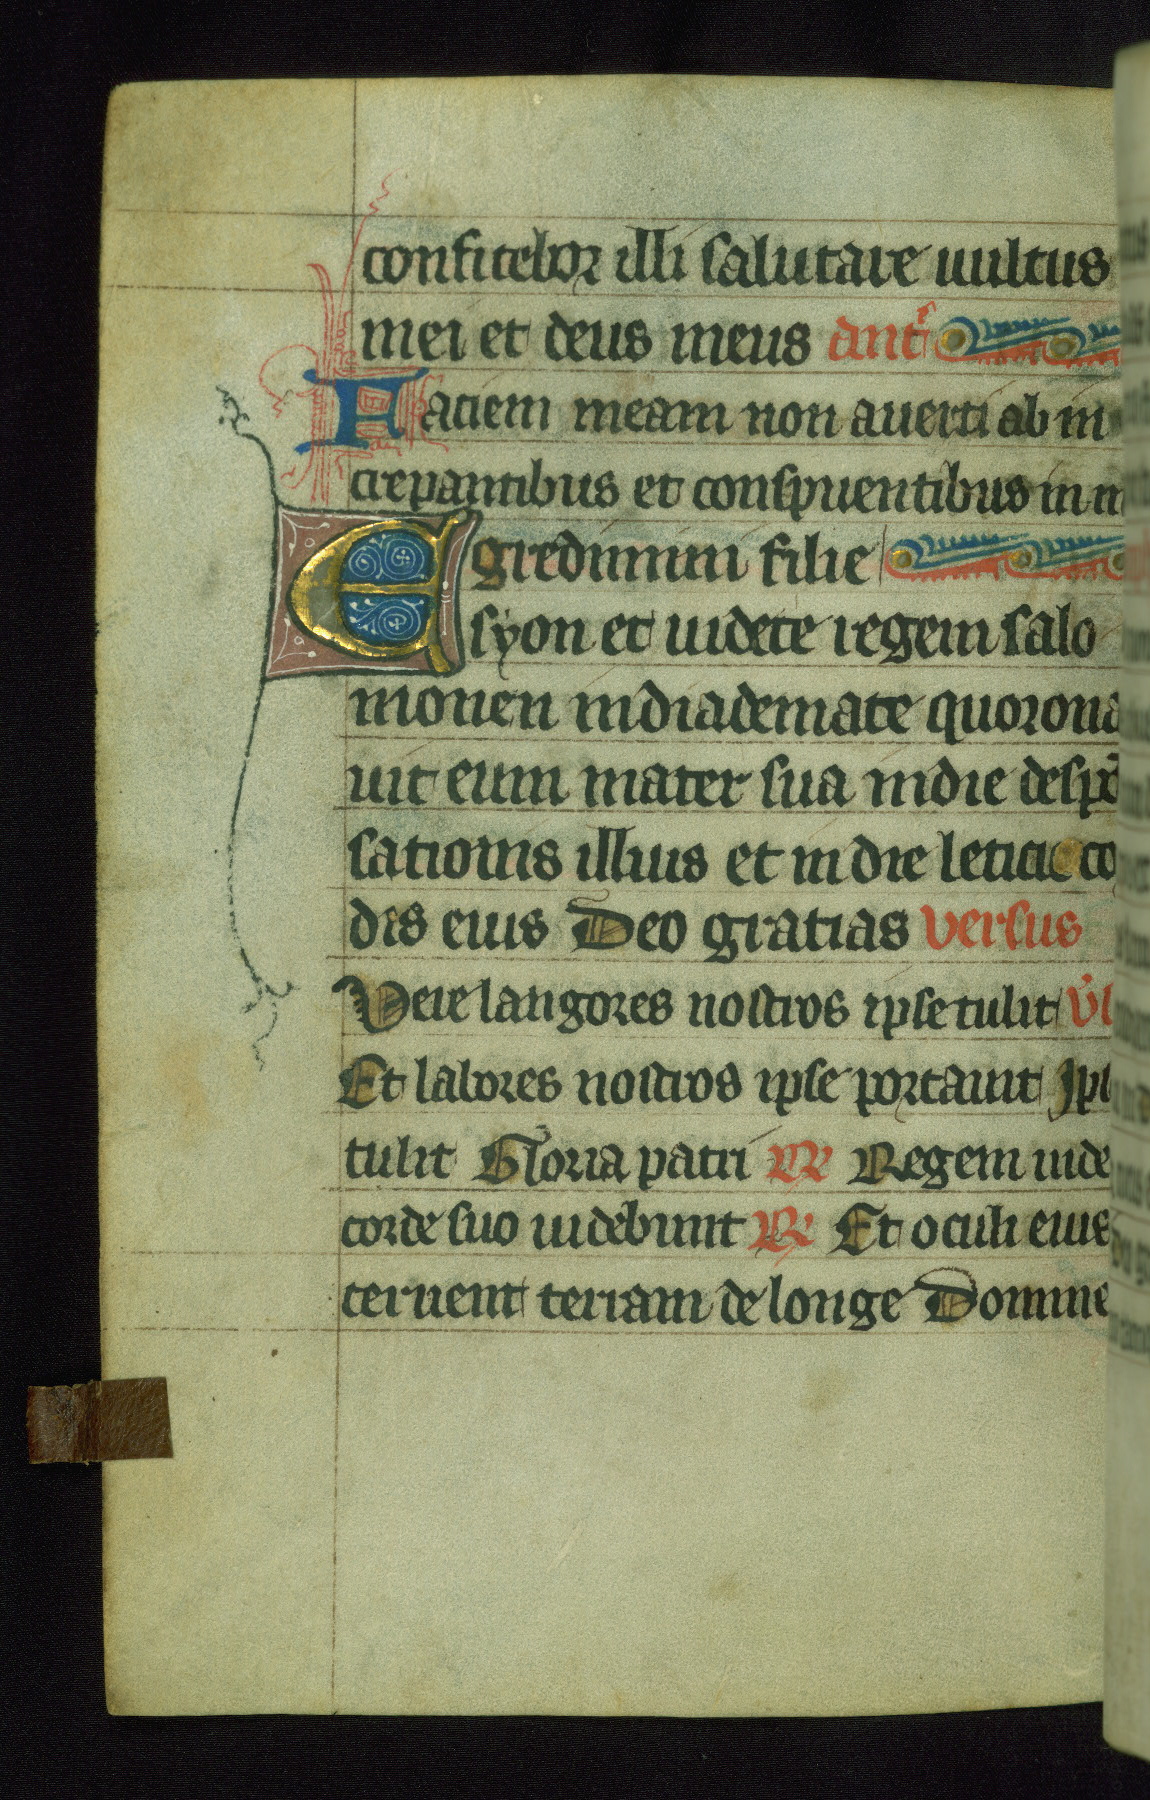 confitebor illi salutare uultus
mei et deus meus antᵉ
Faciem meam non auerti ab in
crepantibus et conspuentibus in m
Egredimini filie
syon et uidete regem salo
monen in diademate quorona
uit eum mater sua in die despō
sationis illius et in die leticie co
dis eius Deo gratias versus
Vere langores nostros ipse tulit
Et labores nostros ipse portauit
tulit Gloria patri R Regem uide
corde suo uidebunt R Et oculi eius
cernent terram de longe Domine